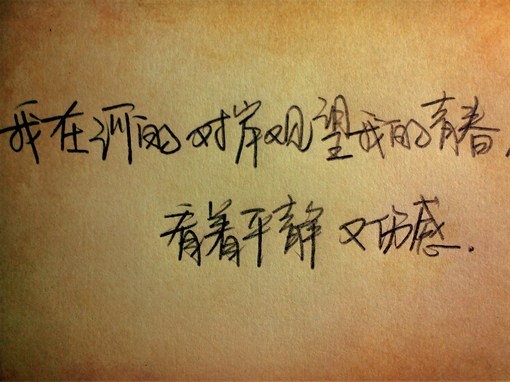 我在河的对岸观望我的青春,
看着平静又伤感.